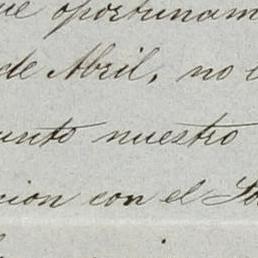 ue oportunam
de Abril, no
unto nuestro
cion con el